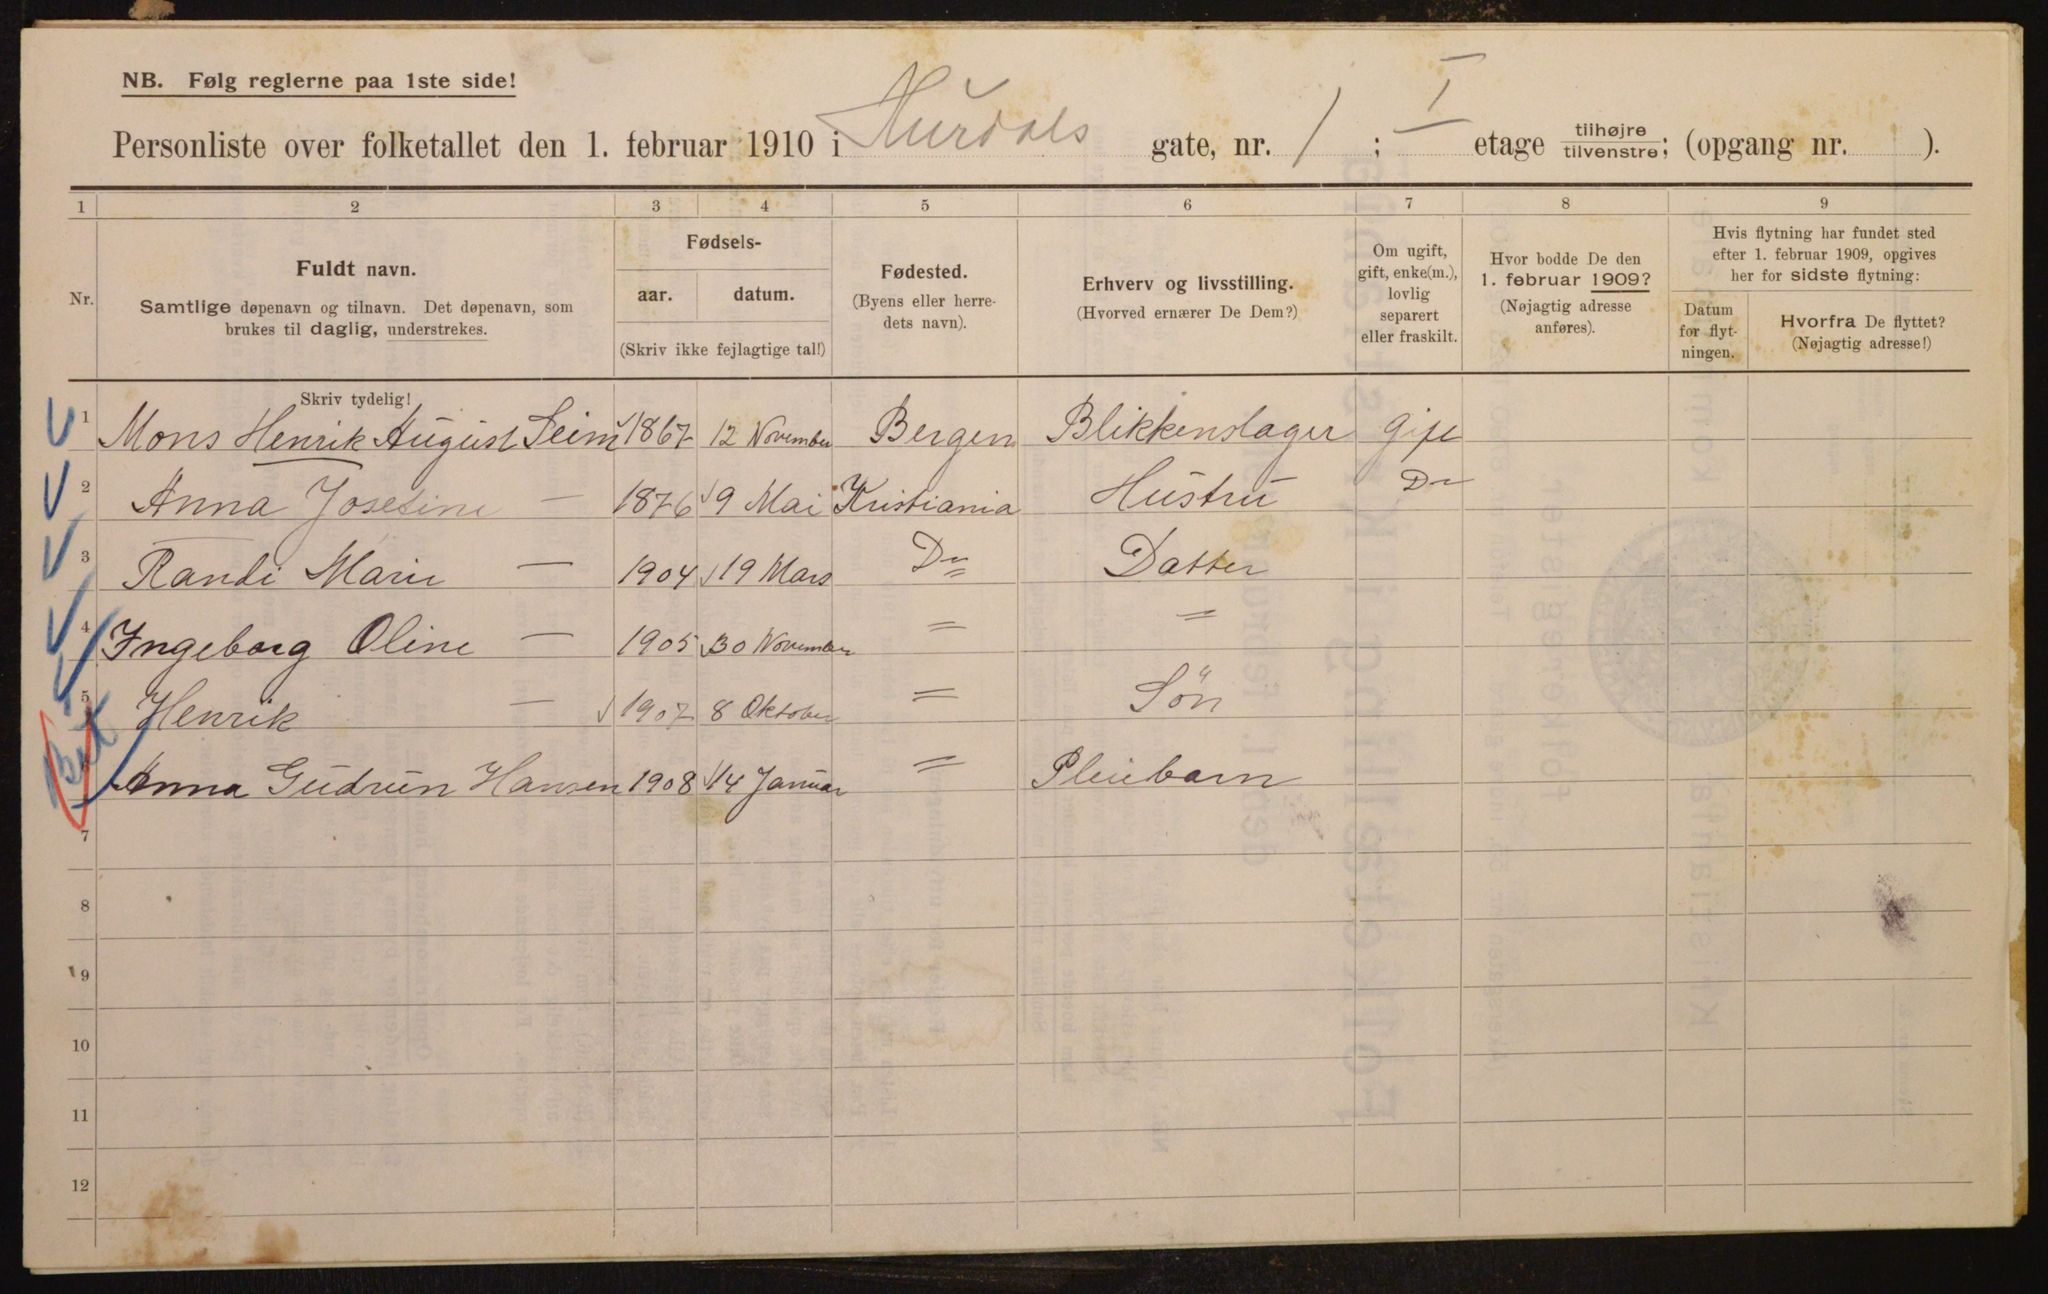 NB. Følg reglerne paa 1ste side!
Personliste over folketallet den 1. februar 1910 i Hurdals gate, nr. 1 ; I etage tilhøjre tilvenstre; (opgang nr. ).
1 2 3 4 5 6 7 8 9
Nr.
Fuldt navn.
Samtlige døpenavn og tilnavn. Det døpenavn, som
brukes til daglig, understrekes.
Fødsels-
aar. datum.
(Skriv ikke fejlagtige tal!)
Fødested.
(Byens eller herre-
dets navn).
Erhverv og livsstilling.
(Hvorved ernærer De Dem?)
Om ugift,
gift, enke(m.),
lovlig
separert
eller fraskilt.
Hvor bodde De den
1. februar 1909?
(Nøjagtig adresse
anføres).
Hvis flytning har fundet sted
efter 1. februar 1909, opgives
her for sidste flytning:
Datum
for flyt-
ningen.
Hvorfra De flyttet?
(Nøjagtig adresse!)
Skriv tydelig!
1 Mons Henrik August Seim 1867 12 November Bergen Blikkenslager Gift
2 Anna Josefine — 1876 9 Mai Kristiania Hustru Do
3 Randi Marie — 1904 19 Mars Do Datter
4 Ingeborg Oline — 1905 30 November = =
5 Henrik — 1907 8 Oktober = Søn
6 Anna Gudrun Hansen 1908 14 Januar = Pleiebarn
7
8
9
10
11
12